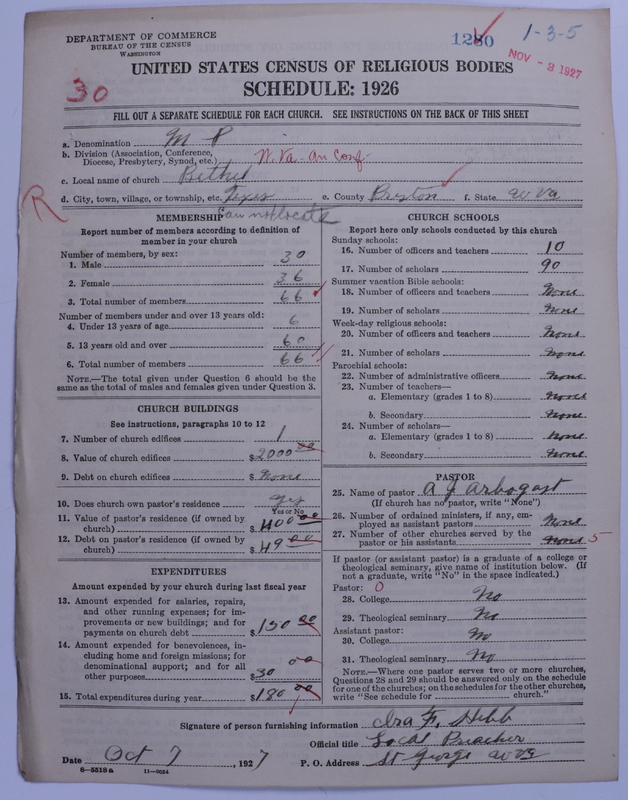 DEPARTMENT OF COMMERCE
BUREAU OF THE CENSUS
WASHINGTON
1280
1-3-5
NOV - 2 1927
30
UNITED STATES CENSUS OF RELIGIOUS BODIES
SCHEDULE: 1926
FILL OUT A SEPARATE SCHEDULE FOR EACH CHURCH. SEE INSTRUCTIONS ON THE BACK OF THIS SHEET
a. Denomination M P
b. Division (Association, Conference, Diocese, Presbytery, Synod, etc.) W. Va - An Conf-
c. Local name of church Bethel
d. City, town, village, or township, etc. Texas e. County Preston f. State W Va
R
can not locate
MEMBERSHIP
Report number of members according to definition of
member in your church
Number of members, by sex:
1. Male 30
2. Female 36
3. Total number of members 66
Number of members under and over 13 years old:
4. Under 13 years of age 6
5. 13 years old and over 60
6. Total number of members 66
NOTE.—The total given under Question 6 should be
same as the total of males and females given under Question 3.
CHURCH BUILDINGS
See instructions, paragraphs 10 to 12
7. Number of church edifices 1
8. Value of church edifices $2000 00
9. Debt on church edifices $ None
10. Does church own pastor's residence? Yes
Yes or No
11. Value of pastor's residence (if owned by
church) $ 400 00
12. Debt on pastor's residence (if owned by
church) $ 49 00
EXPENDITURES
Amount expended by your church during last fiscal year
13. Amount expended for salaries, repairs,
and other running expenses; for im-
provements or new buildings; and for
payments on church debt $150 00
14. Amount expended for benevolences, in-
cluding home and foreign missions; for
denominational support; and for all
other purposes $30 00
15. Total expenditures during year $180 00
CHURCH SCHOOLS
Report here only schools conducted by this church
Sunday schools:
16. Number of officers and teachers 10
17. Number of scholars 90
Summer vacation Bible schools:
18. Number of officers and teachers None
19. Number of scholars None
Week-day religious schools:
20. Number of officers and teachers None
21. Number of scholars None
Parochial schools:
22. Number of administrative officers None
23. Number of teachers—
a. Elementary (grades 1 to 8) None
b. Secondary None
24. Number of scholars—
a. Elementary (grades 1 to 8) None
b. Secondary None
PASTOR
25. Name of pastor A J Arbogast
(If church has no pastor, write "None")
26. Number of ordained ministers, if any, em-
ployed as assistant pastors None
27. Number of other churches served by the
pastor or his assistants None 5
If pastor (or assistant pastor) is a graduate of a college or
theological seminary, give name of institution below. (If
not a graduate, write "No" in the space indicated.)
Pastor: 0
28. College No
29. Theological seminary No
Assistant pastor:
30. College No
31. Theological seminary No
NOTE.—Where one pastor serves two or more churches,
Questions 28 and 29 should be answered only on the schedule
for one of the churches; on the schedules for the other churches,
write "See schedule for church."
Signature of person furnishing information Ira F. Hebb
Official title Local Preacher
Date Oct 7, 1927 P. O. Address St George W Va
8-5518a 11-9054